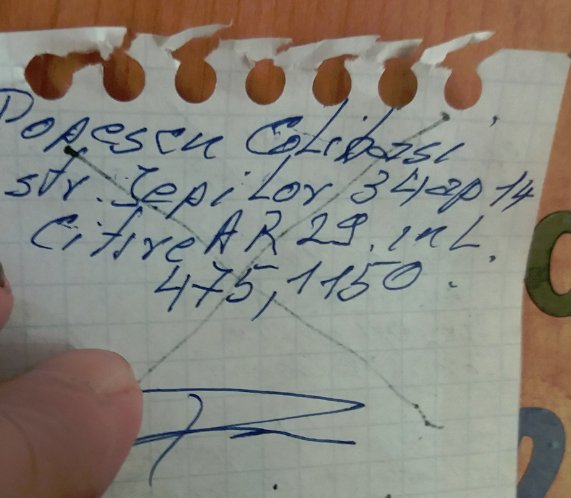 Popescu Colibasi
str. Jepilor 34 ap 14
Citire AR 29. inL.
475,1150.